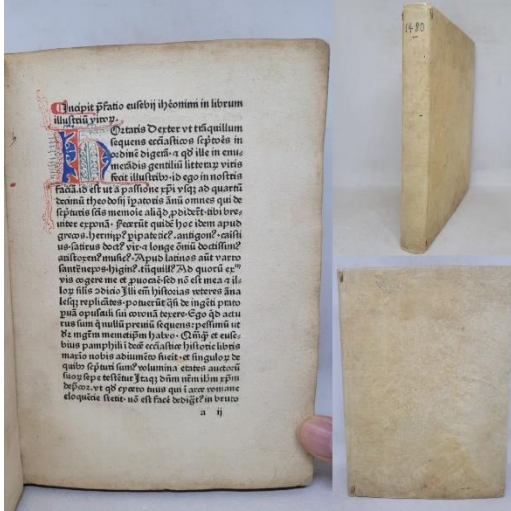 Incipit p̄fatio eusebij ihe͂onimi in librum
illustriū viroꝝ.
Hortaris Dexter vt trāquillum
sequens ecc̄iasticos sc̄ptōes in
ordinē digerā. ⁊ qd ille in enu-
merādis gentiliū litteraꝝ viris
fecit illustribꝰ. id ego in nostris
faciā. id est ut a passione xp̄i vsqꝫ ad quartū
decimū theodosij īpatoris ānū. omnes qui de
sc̄pturis sc̄is memoīe aliqd ꝓdidert̄. tibi bre-
uiter exponā. Fecerūt quidē hoc idem apud
grecos. hermippꝰ. antigonꝰ.
satirus doctꝰ vir. ⁊ longe ōmiū doctissimꝰ
aristoxenꝰ musicꝰ. Apud latinos aūt varro
higinꝰ. Ad quorū
cogere me et seꝺ nō est mea ⁊ il-
loꝝ silis ꝯdicio Illi em̄ historias veteres
replicātes. potuerūt de ingēti prato
opusculi sui coronā texere. Ego qd actu
rus sum q̄ nullū preuiū sequens: pessimū ut
mgr̄m memetip̄m habeo. et euse-
bius pamphili ī decē ecc̄iastice historie libris
nobis adiumēto fuerit. et singuloꝝ de
quibꝰ sc̄pturi sumꝰ volumina etates auctorū
suoꝝ sepe testētur Itaqꝫ dn̄m nr̄m ihm xp̄m
vt qd cycero tuus qui ī arce romane
eloquētie stetit. nō est facē in bruto
a ij
1480